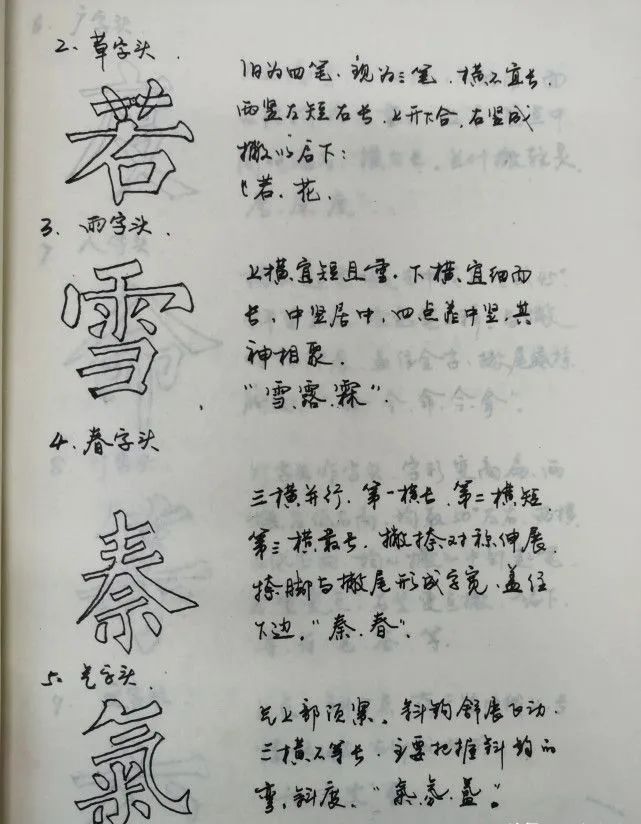 2、草字头.
若
旧为四笔、现为三笔,横不宜长,
两竖左短右长,上开下合,右竖成
撇必启下:
“若、花,
3、雨字头.
雪
上横宜短且重,下横宜细而
长,中竖居中,四点 中竖,其
神相聚.
“雪、露、霖”.
4、春字头
秦
三横并行,第一横长,第二横短,
第三横最长,撇捺对称伸展,
捺脚与撇尾形成字宽,盖住
下边,“秦、春”.
5、气字头.
氣
上部顶紧,斜钩舒展飞动
三横不等长,主要把握斜钩的
弯,斜度,“氣、氛、氲。